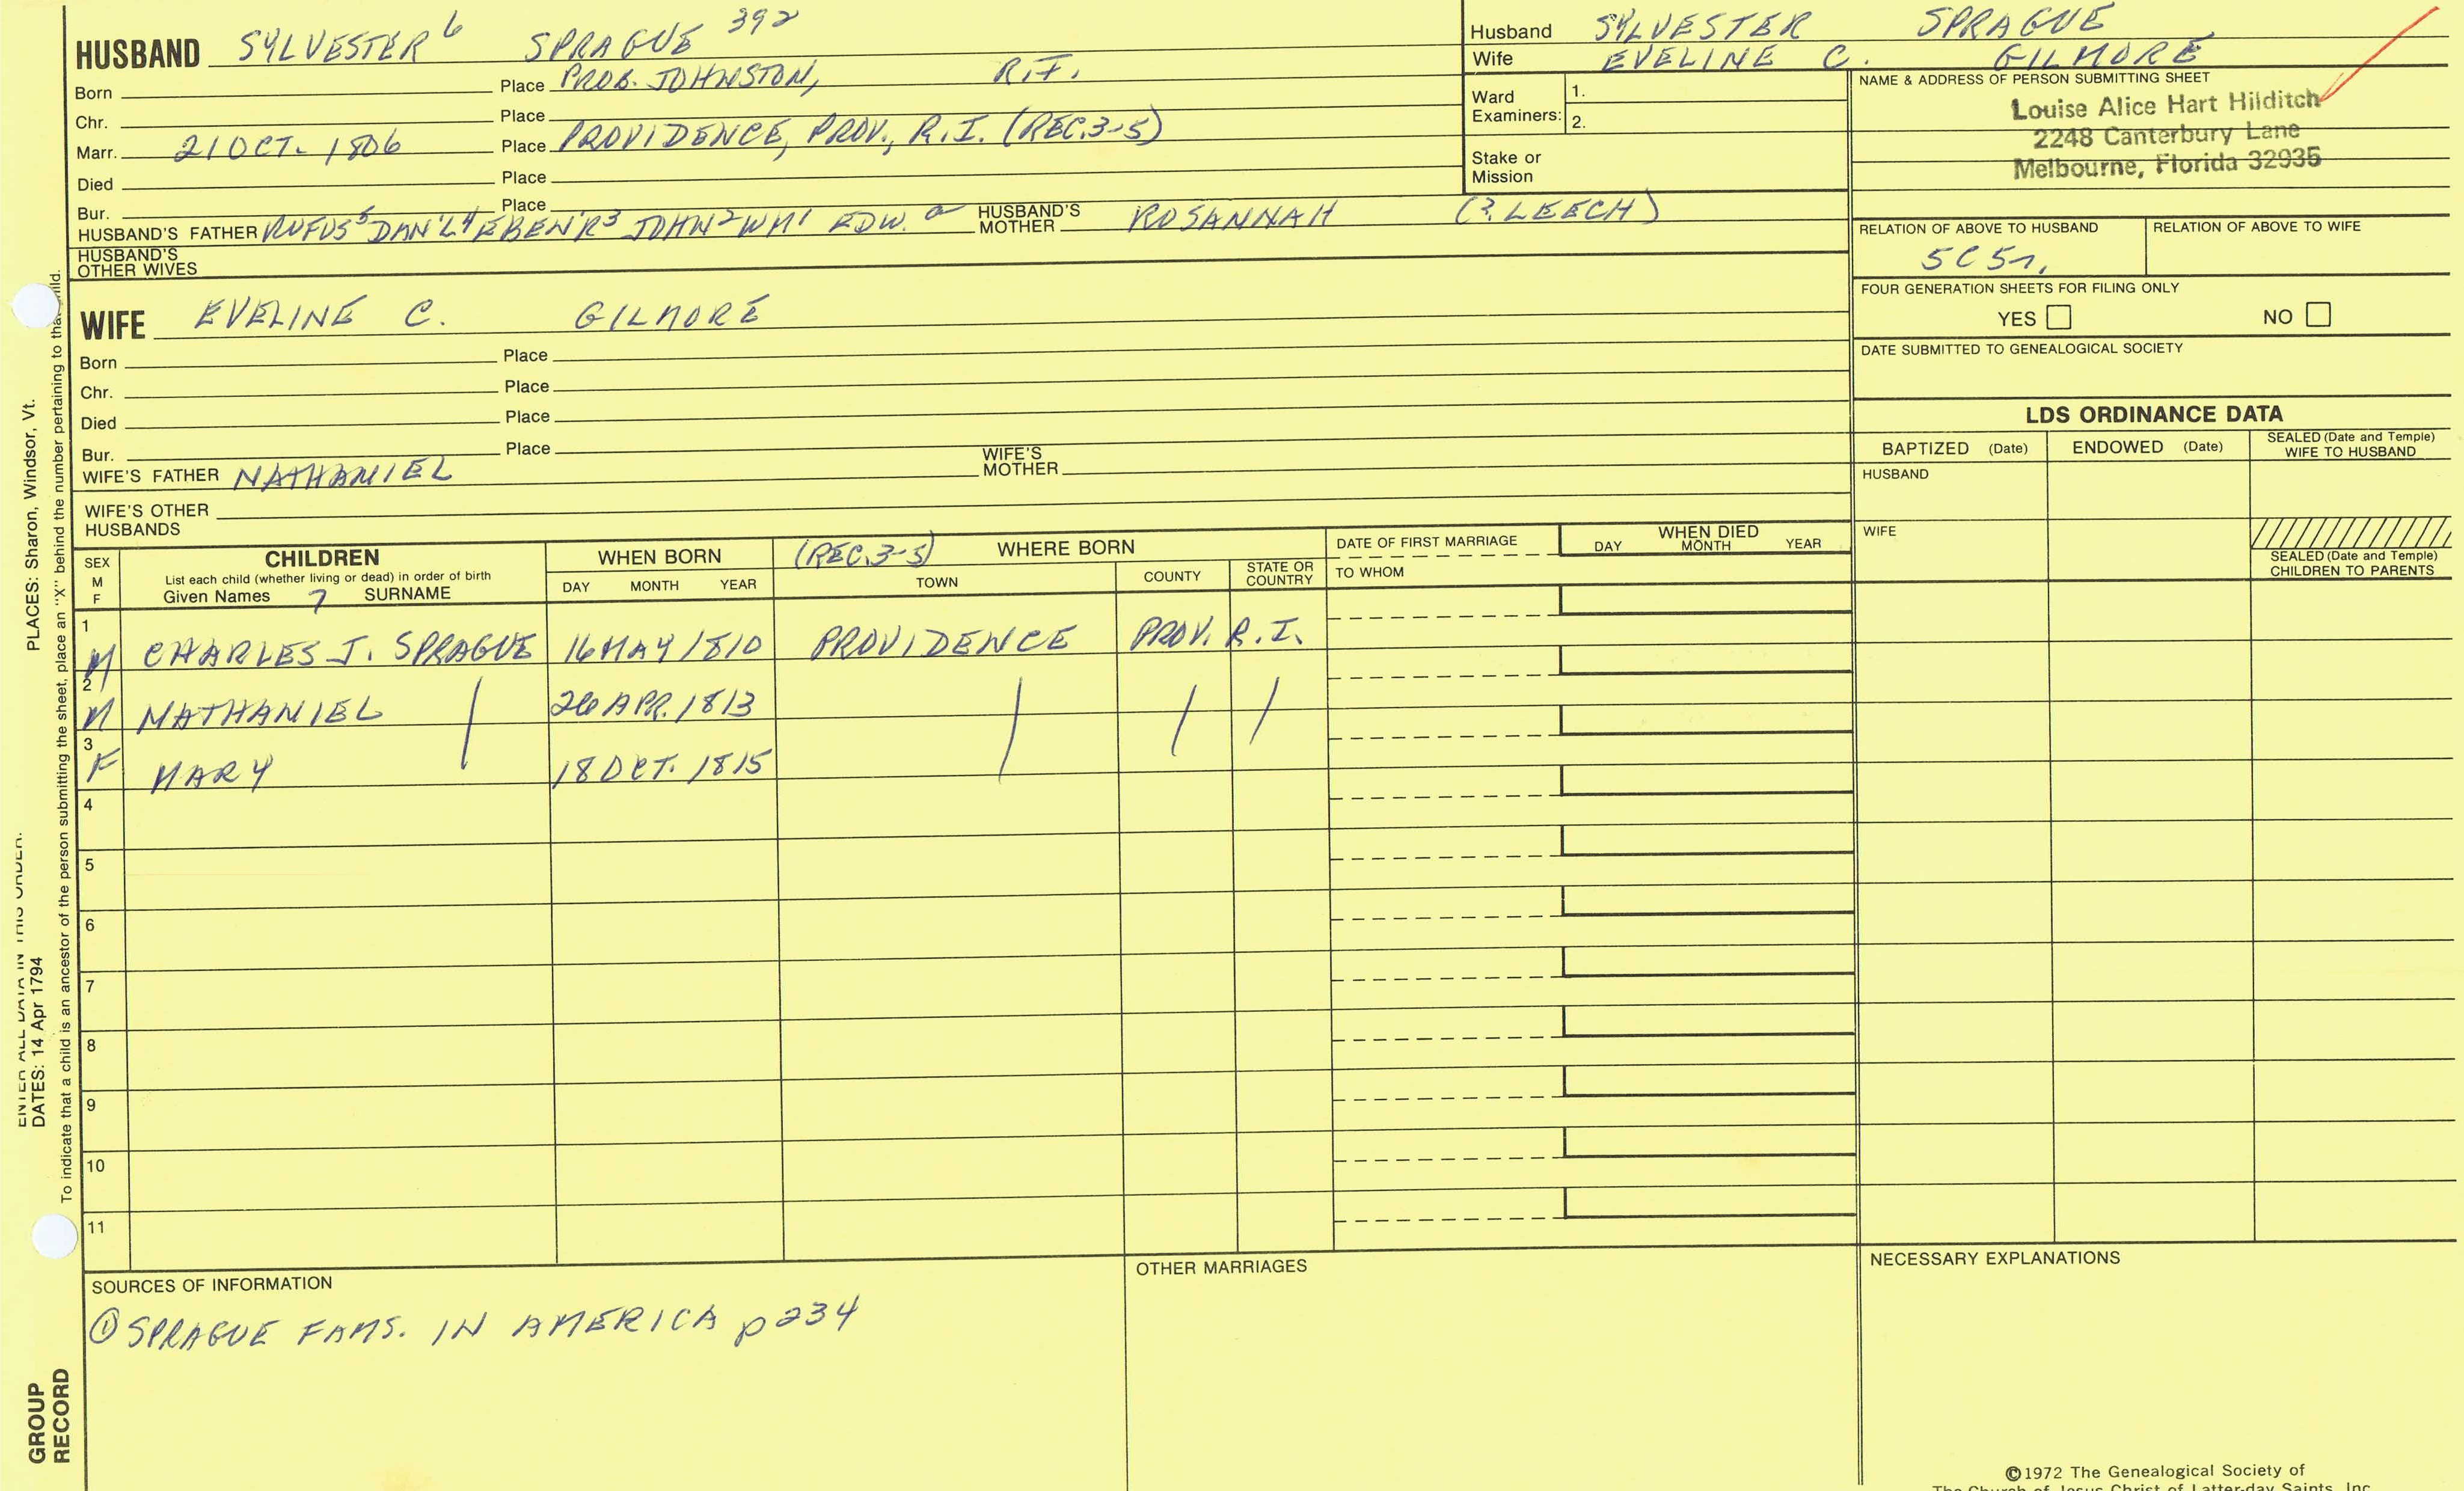 HUSBAND SYLVESTER 6 SPRAGUE 392
Born Place PROB. JOHNSTON, R.I.
Chr. Place
Marr. 21 OCT. 1806 Place PROVIDENCE, PROV., R.I. (REC.3-5)
Died Place
Bur. Place
HUSBAND'S FATHER RUFUS5 DAN'L4 EBEN'R3 JOHN2 WM1 EDW. a HUSBAND'S MOTHER ROSANNAH (?LEECH)
HUSBAND'S OTHER WIVES
Husband SYLVESTER SPRAGUE
Wife EVELINE C. GILMORE
Ward Examiners: 1.
2.
Stake or Mission
NAME & ADDRESS OF PERSON SUBMITTING SHEET
Louise Alice Hart Hilditch
2248 Canterbury Lane
Melbourne, Florida 32935
RELATION OF ABOVE TO HUSBAND RELATION OF ABOVE TO WIFE
5C5r.
FOUR GENERATION SHEETS FOR FILING ONLY
YES NO
DATE SUBMITTED TO GENEALOGICAL SOCIETY
WIFE EVELINE C. GILMORE
Born Place
Chr. Place
Died Place
Bur. Place
WIFE'S FATHER NATHANIEL WIFE'S MOTHER
WIFE'S OTHER HUSBANDS
LDS ORDINANCE DATA
BAPTIZED (Date) ENDOWED (Date) SEALED (Date and Temple) WIFE TO HUSBAND
HUSBAND
WIFE
SEALED (Date and Temple) CHILDREN TO PARENTS
SEX M F
CHILDREN
List each child (whether living or dead) in order of birth
Given Names 7 SURNAME
WHEN BORN
DAY MONTH YEAR
(REC.3-5) WHERE BORN
TOWN COUNTY STATE OR COUNTRY
DATE OF FIRST MARRIAGE
TO WHOM
WHEN DIED
DAY MONTH YEAR
1 M CHARLES J. SPRAGUE 16 MAY 1810 PROVIDENCE PROV. R.I.
2 M NATHANIEL / 26 APR. 1813 / / /
3 F MARY 18 OCT. 1815
4
5
6
7
8
9
10
11
SOURCES OF INFORMATION
① SPRAGUE FAMS. IN AMERICA p 234
OTHER MARRIAGES
NECESSARY EXPLANATIONS
©1972 The Genealogical Society of
The Church of Jesus Christ of Latter-day Saints, Inc.
ENTER ALL DATA IN THIS ORDER:
DATES: 14 Apr 1794 PLACES: Sharon, Windsor, Vt.
To indicate that a child is an ancestor of the person submitting the sheet, place an "X" behind the number pertaining to that child.
GROUP
RECORD